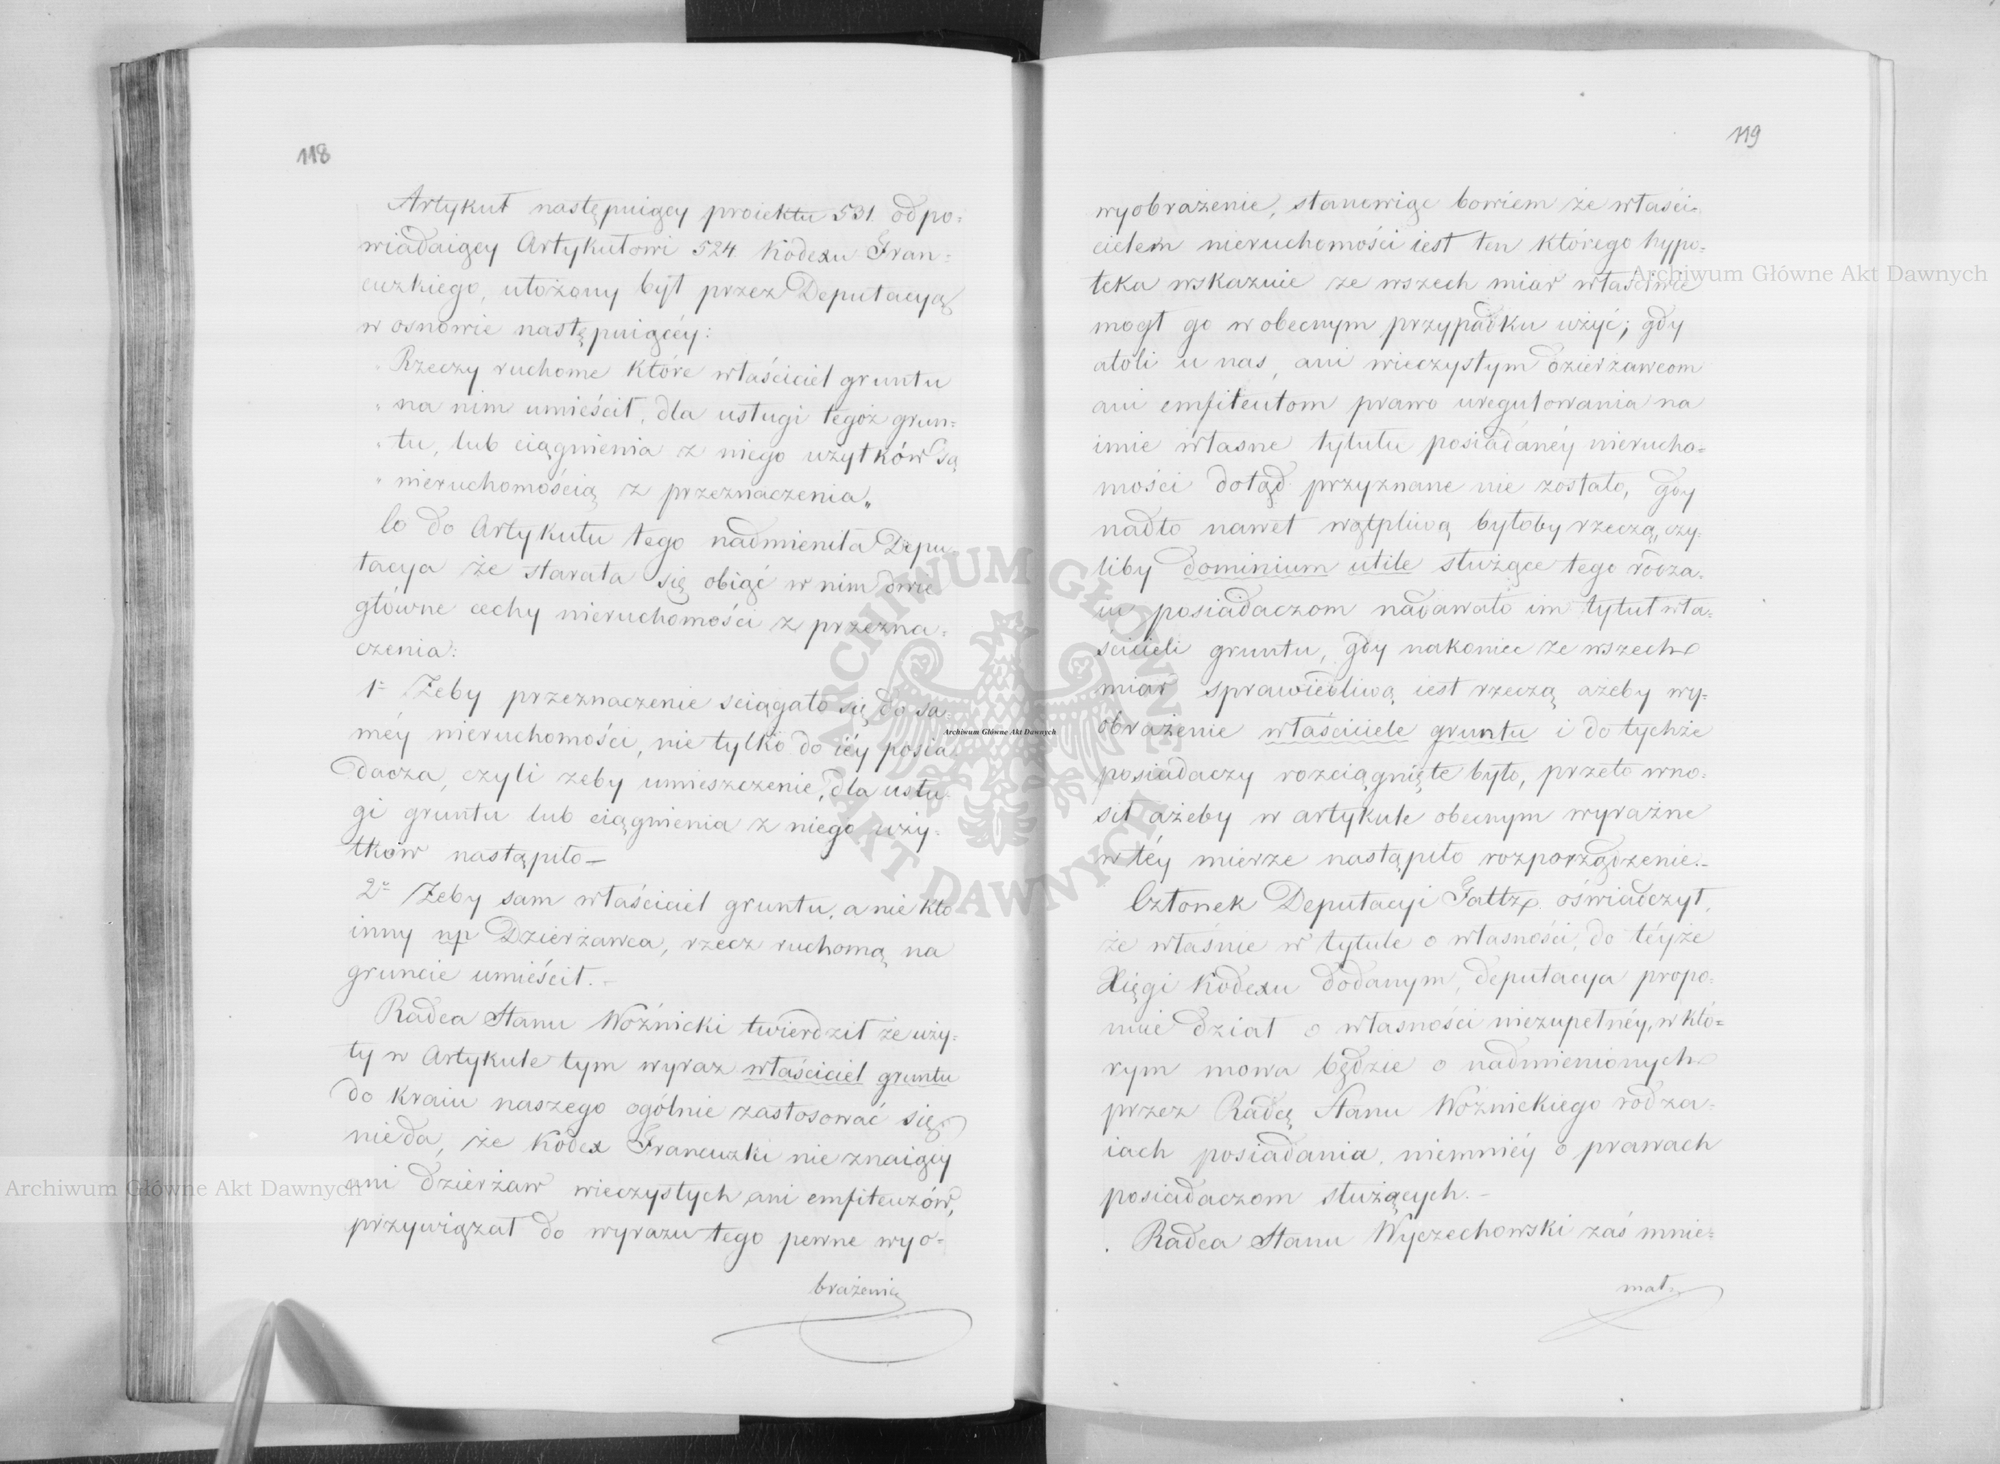 118
Artykuł następuiący proiektu 531. odpo=
wiadaiący Artykułowi 524. Kodexu Fran=
cuzkiego, ułożony był przez Deputacyą
w osnowie następuiącéy:
„Rzeczy ruchome które właściciel gruntu
„na nim umieścił, dla usługi tegoż grun=
„tu, lub ciągnienia z niego użytków są
„nieruchomością z przeznaczenia„
Co do Artykułu tego nadmieniła Depu
tacya że starała się obiąć w nim dwie
główne cechy nieruchomości z przezna=
czenia:
1= Żeby przeznaczenie sciągało się do sa=
méy nieruchomości, nie tylko do iéy posia
dacza, czyli żeby umieszczenie, dla usłu
gi gruntu lub ciągnienia z niego uży=
tków nastąpiło—
2= Żeby sam właściciel gruntu, a nie kto
inny np Dzierżawca, rzecz ruchomą na
gruncie umieścił.—
Radca Stanu Woźnicki twierdził że uży=
ty w Artykule tym wyraz właściciel gruntu
do kraiu naszego ogólnie zastosować się
nie da, że Kodex Francuzki nie znaiący
ani dzierżaw wieczystych ani emfiteuzów,
przywiązał do wyrazu tego pewne wyo=
brażenie
119
wyobrażenie, stanowiąc bowiem że właści=
cielem nieruchomości iest ten którego hypo=
teka wskazuie ze wszech miar właściwie
mógł go w obecnym przypadku użyć; gdy
atoli u nas, ani wieczystym dzierżawcom
ani emfiteutom prawo uregulowania na
imie własne tytułu posiadanéy nierucho=
mości dotąd przyznane nie zostało, gdy
nadto nawet wątpliwą byłoby rzeczą, czy
liby dominium utile służące tego rodza=
iu posiadaczom nadawało im tytuł wła=
ścicieli gruntu, gdy nakoniec ze wszech
miar sprawiedliwą iest rzeczą ażeby wy=
obrażenie właściciele gruntu i do tychże
posiadaczy rozciągnięte było, przeto wno=
sił ażeby w artykule obecnym wyraźne
w téy mierze nastąpiło rozporządzenie.—
Członek Deputacyi Faltz oświadczył,
że właśnie w tytule o własności, do téyże
Xięgi Kodexu dodanym, deputacya propo=
nuie dział o własności niezupełnéy, w któ=
rym mowa będzie o nadmienionych
przez Radcę Stanu Woźnickiego rodza=
iach posiadania, niemniéy o prawach
posiadaczom służących.—
Radca Stanu Wyczechowski zaś mnie=
mał
Archiwum Główne Akt Dawnych
ARCHIWUM GŁÓWNE AKT DAWNYCH
Archiwum Główne Akt Dawnych
Archiwum Główne Akt Dawnych